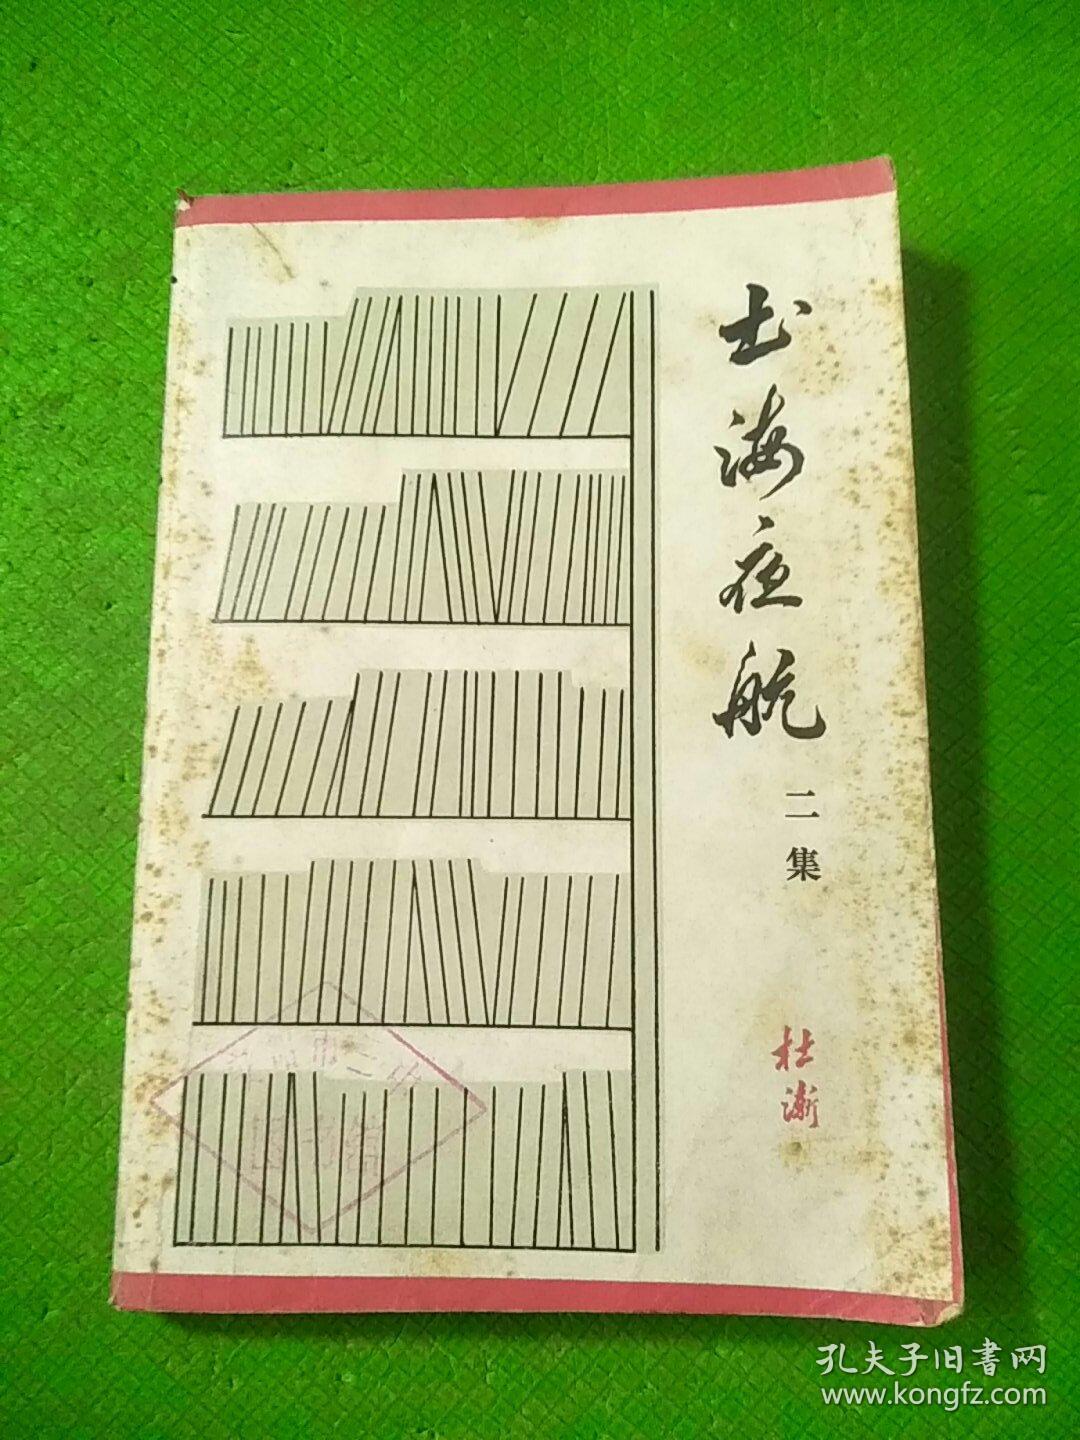 书海夜航
二集
杜渐
市二中
图书馆
孔夫子旧書网
www.kongfz.com